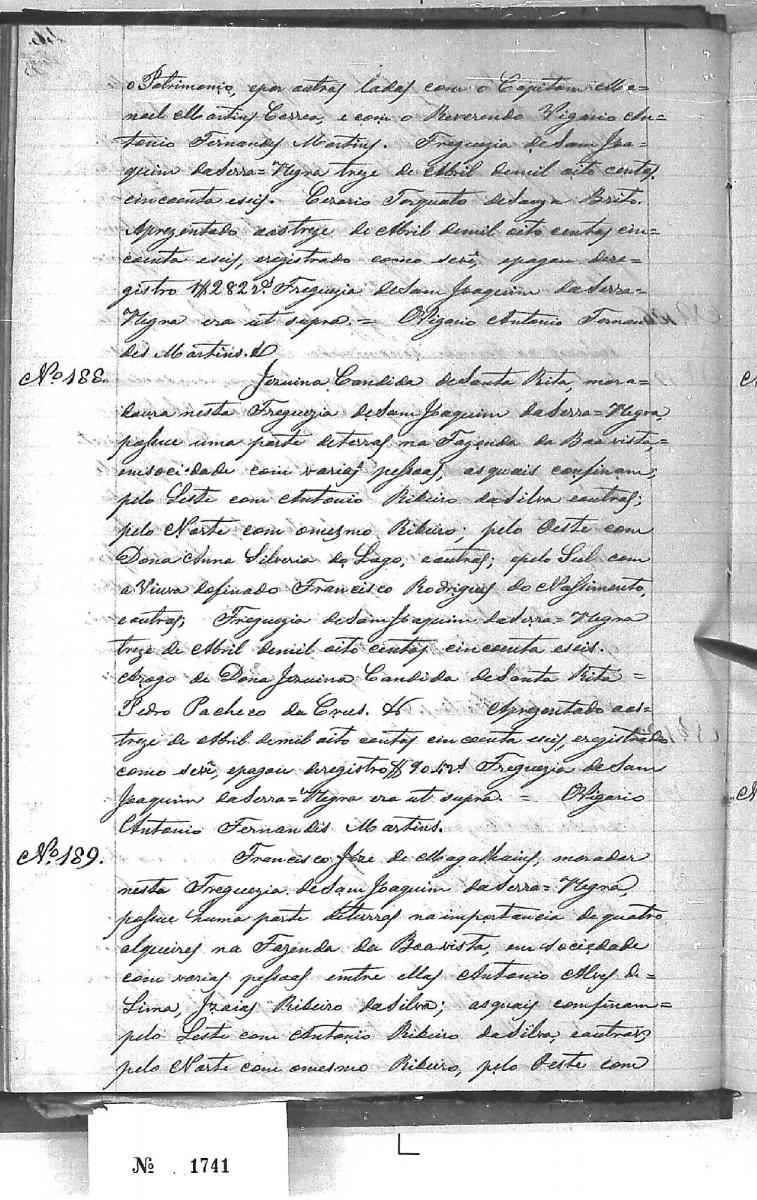 o Patrimonio, epor outros lados com o Capitam Ma=
noel Martins Correa, e com o Reverendo Vigario An=
tonio Fernandes Martins. Freguezia de Sam Joa=
quim da Serra=Negra treze de Abril demil oito centos,
cincoenta eseis. Cezario Torquato de Souza Brito.
Aprezentado aos treze de Abril demil oito centos cin=
coenta eseis, eregistrado como será, epagou dere=
gistro 1$282 rs Freguezia de Sam Joaquim da Serra=
Negra era ut supra. = O Vigario Antonio Fernan
des Martins.
No. 188. Jezuina Candida de Santa Rita, mora=
doura nesta Freguezia de Sam Joaquim da Serra=Negra,
possue uma parte deterras na Fazenda da Boa vista,=
emsocidade com varias pessoas, asquais confinam;
pelo Leste com Antonio Ribeiro da Silva eoutros;
pelo Norte com omesmo Ribeiro; pelo Oeste com
Dona Anna Silveria do Lago, eoutros; epelo Sul com
a Viuva dofinado Francisco Rodrigues do Nassimento,
eoutros; Freguezia de Sam Joaquim da Serra=Negra
treze de Abril demil oito centos cincoenta eseis.
Arogo de Dona Jezuina Candida de Santa Rita =
Pedro Pacheco da Crus. Aprezentado aos=
treze de Abril demil oito centos cincoenta eseis, eregistrado
como será, epagou deregistro Freguezia de Sam
Joaquim da Serra=Negra era ut supra. = O Vigario
Antonio Fernandes Martins.
No. 189. Francisco Jozé de Magalhains, morador
nesta Freguezia de Sam Joaquim da Serra=Negra,
possue huma parte deterras na importancia de quatro
alqueires na Fazenda da Boavista, em sociedade
com varias pessoas entre ellas Antonio Alves de=
Lima, Izaias Ribeiro da Silva; asquais confinam=
pelo Leste com Antonio Ribeiro da Silva, eoutros;
pelo Norte com omesmo Ribeiro, pelo Oeste com
No 1741